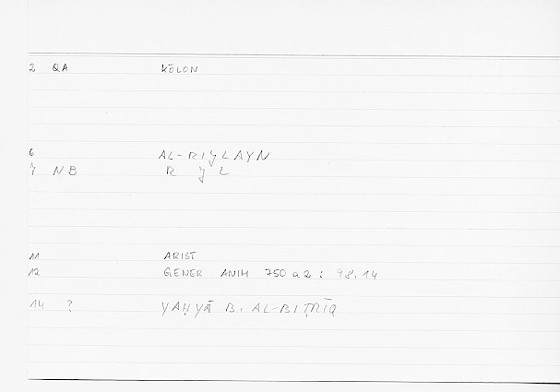 2 QA KĒLON
6 AL-RIǦLAYN
7 NB R Ǧ L
11 ARIST
12 GENER ANIM 750 a 2 : 98.14
14 ? YAḤYĀ B. AL-BIṬRĪQ